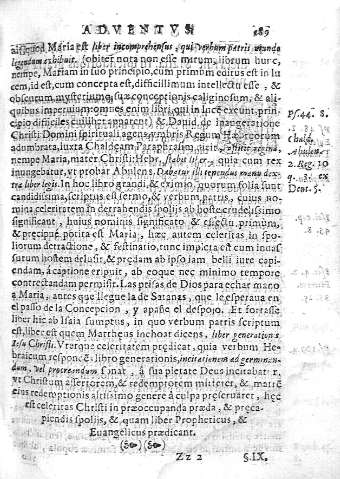 ADVENTVS 189
Maria est liber incomprehensus, qui verbum patris mundo
legendum exhibuit. sobiet nota non esse mirum, librum hunc,
nempe, Mariam in suo principio, cum primum editus est in lu
cem, id est, cum concepta est, difficillimum intellectu esse, &
obscurum mysterium suæ conceptionis caliginosum, & ali
quibus impervium: omnes enim libri, qui in lucē exeunt, princi
pio difficiles cuilibet apparent) & David de inauguratione
Christi Domini spirituali agens
adumbrata, iuxta Chaldęam Paraphrasim, ait, stabit regina,
nempe Maria, mater Christi Hebr. stabit liber, quia cum rex
inungebatur, vt probat Abulens. Dabatur illi tenendus manu dex
tra liber legis. In hoc libro grandi, & eximio, quorum folia sunt
candidissima, scriptus est sermo, & verbum patris, cuius no
mine celeritatem in detrahendis spolijs ab hoste crudelissimo
significavit, huius nominis significatio, & effectu primum,
& precipuè potita est Maria, hæc autem celeritas in spo
liorum detractione, & festinatio, tunc impleta est cum invas
surum hostem delusit, & prædam ab ipso iam belli iure capi
endam, à captione eripuit, ab eoque nec minimo tempore
contrectandam permisit. Las priesas de Dios para echar mano
a Maria, antes que llegue la de Satanas, que le esperava en
el passo de la Concepcion, y apañe el despojo. Et fortasse
liber hic ab Isaia sumptus, in quo verbum patris scriptum
est, liber est quem Mattheus inchoat dicens, liber generationis
Iesu Christi. Vterque celeritatem prædicat, quia verbum He
braicum responcē: libro generationis, incitationem ad germinan
dum, vel procreandum sonat, à sua pietate Deus incitabatur,
vt Christum assertorem, & redemptorem mitteret, & matrē
eius redemptionis altissimo genere à culpa præservaret, hęc
est celeritas Christi in præoccupanda præda, & præca-
piendis spolijs, & quam liber Propheticus, &
Euangelicus prædicant.
Zz 2 §.IX.
Ps. 44. 8.
Chalda.
Abulen.
2. Reg. 10
q. 3. ex
Deut. 5.